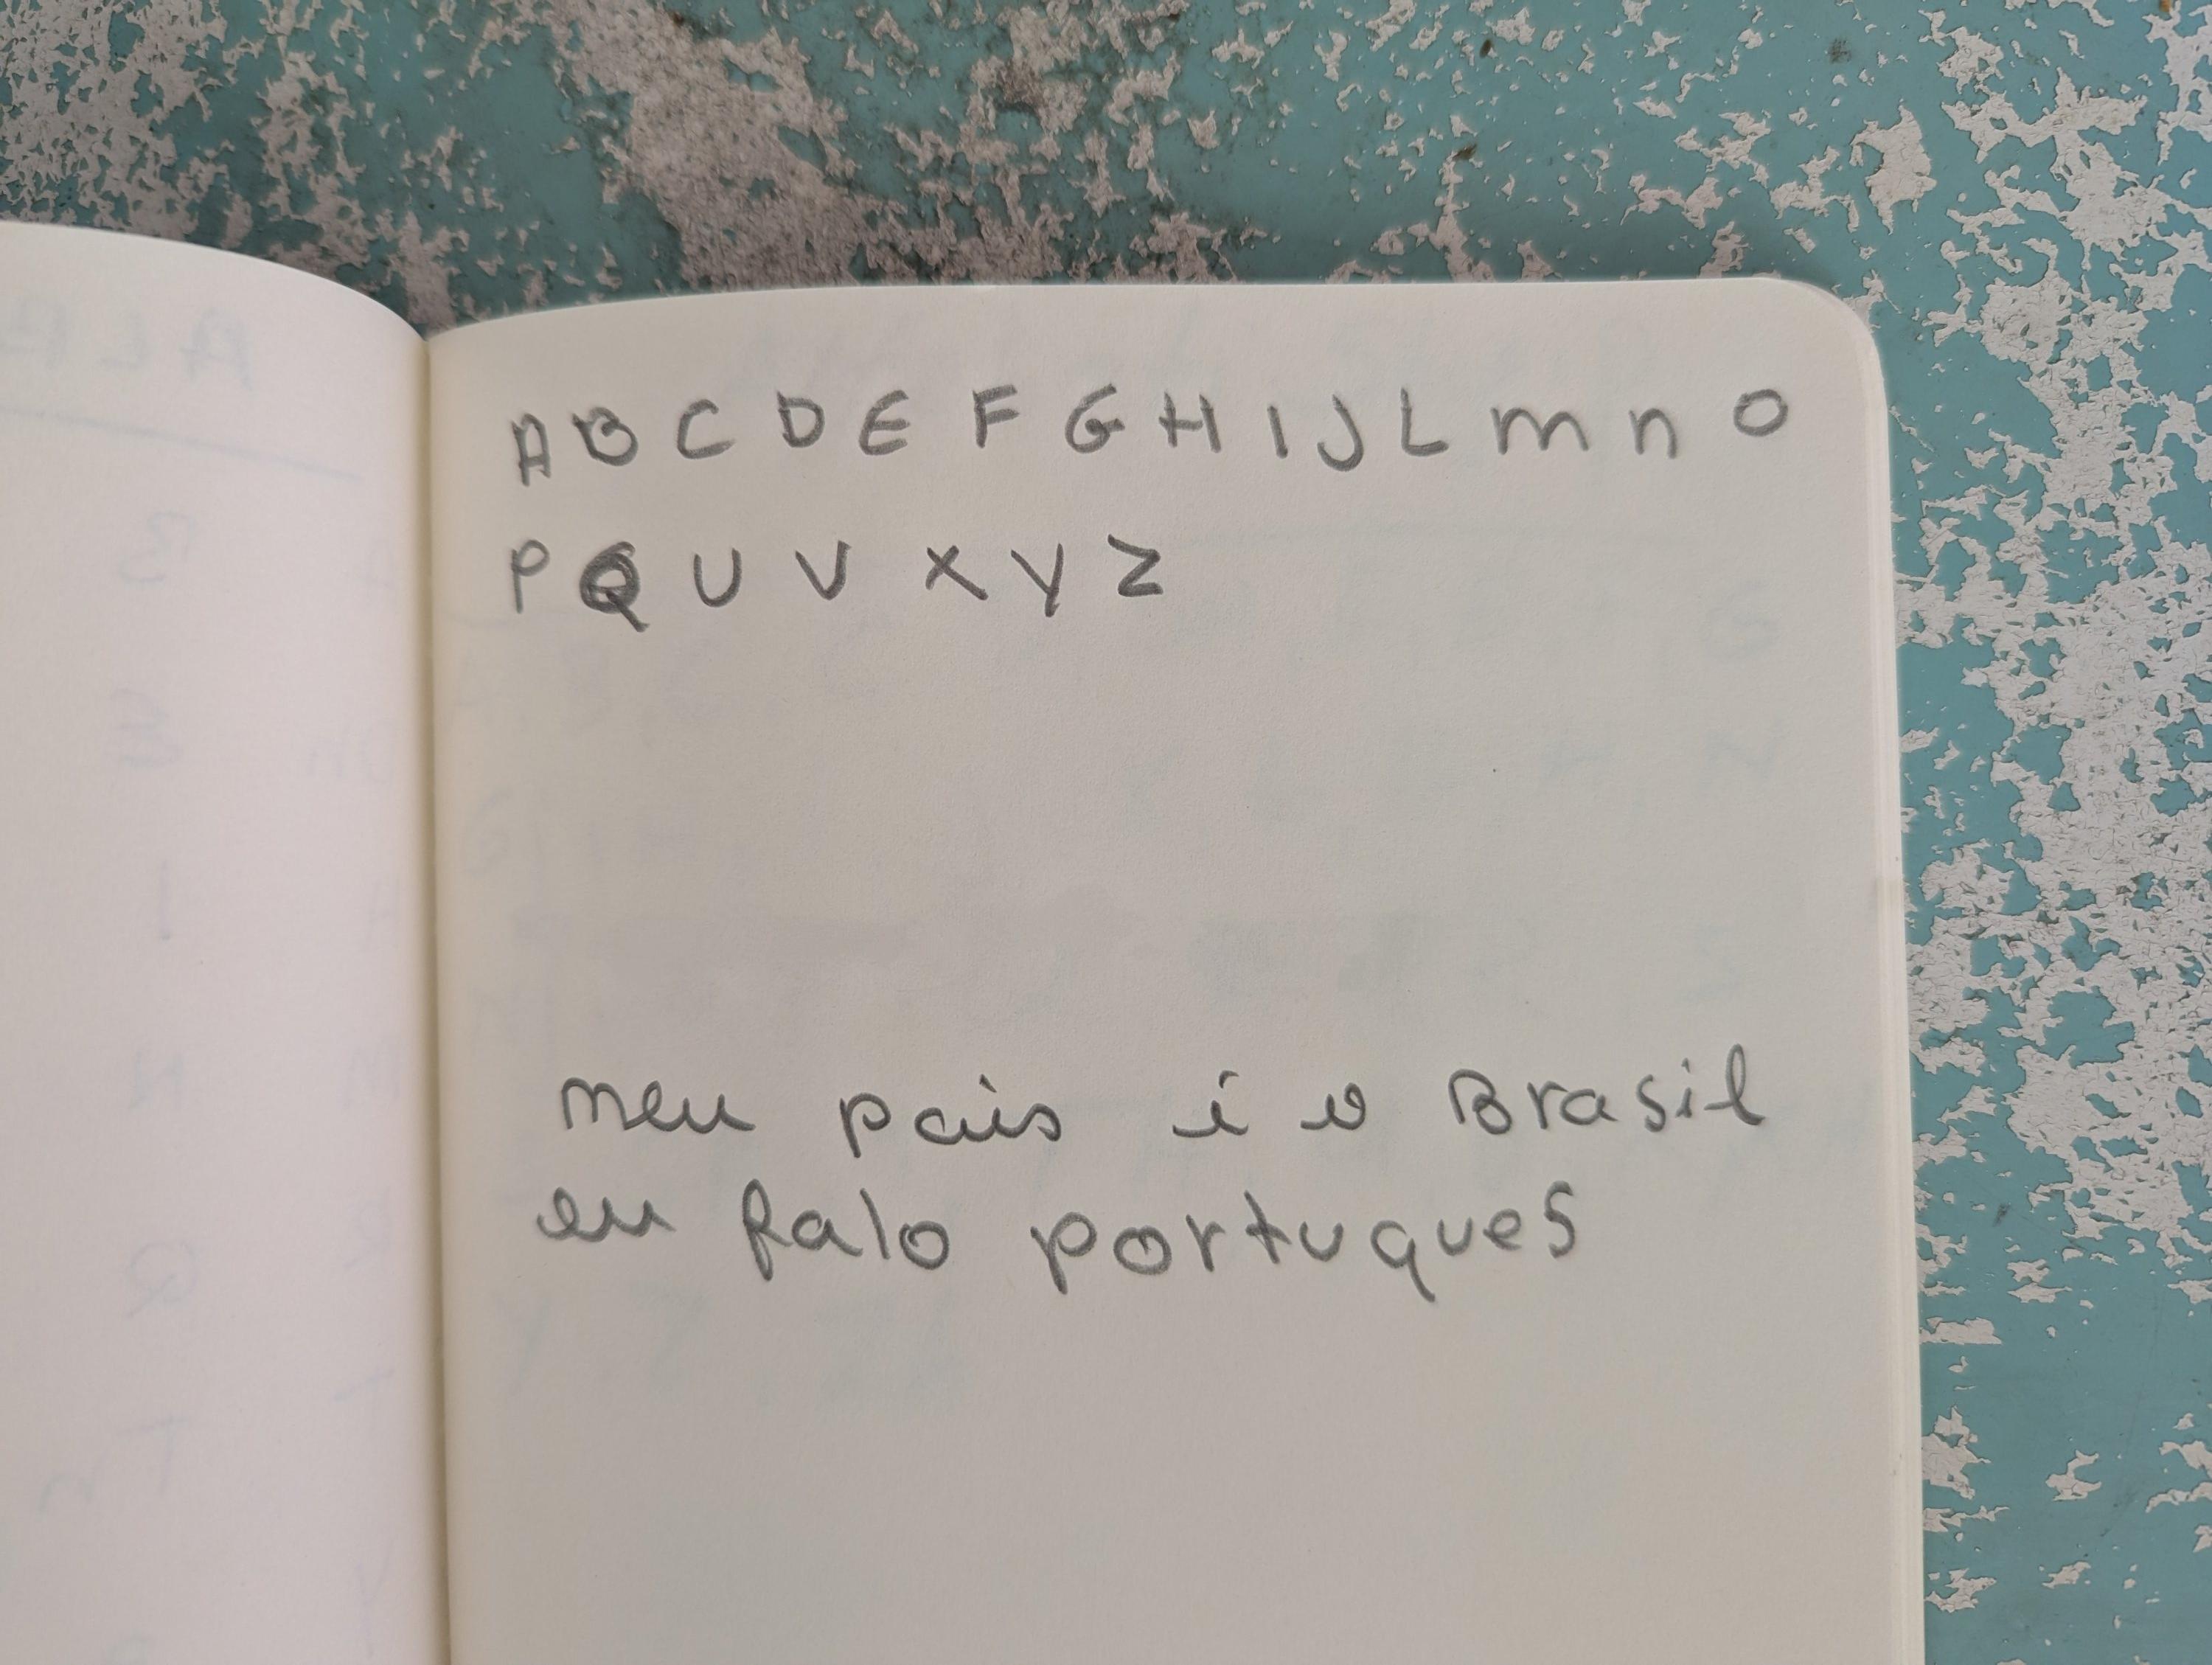 A B C D E F G H I J L m n O
P Q U V X Y Z
meu pais é o Brasil
eu falo portuques